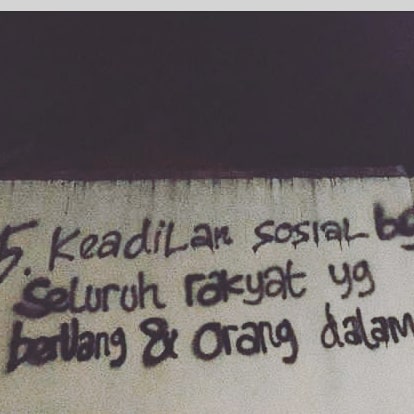 5. Keadilan sosial bg
Seluruh rakyat yg
berUang & orang dalam